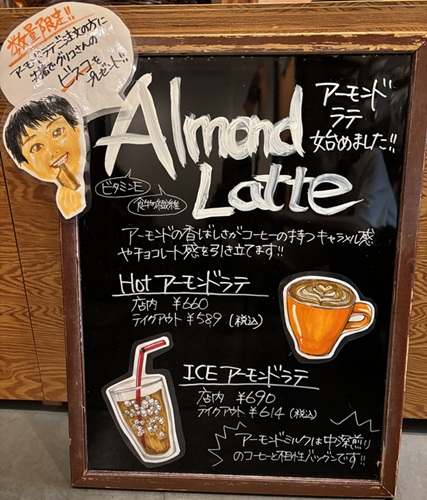 数量限定!!
アーモンドラテご注文の方に
グリコさんの
ビスコを
プレゼント!!
Almond
Latte
アーモンド
ラテ
始めました!!
ビタミンE
食物繊維
アーモンドの香ばしさがコーヒーの持つキャラメル感
やチョコレート感を引き立てます!!
Hot アーモンドラテ
店内 ¥660
テイクアウト ¥589 (税込)
ICE アーモンドラテ
店内 ¥690
テイクアウト ¥614 (税込)
アーモンドミルクは中深煎り
のコーヒーと相性バツグンです!!